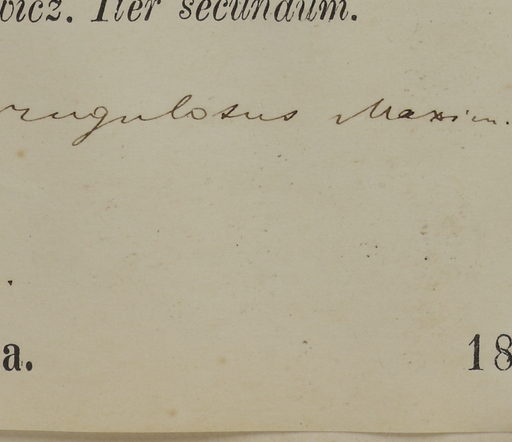 wicz. Iter secundum.
rugulosus Maxim.
a. 18